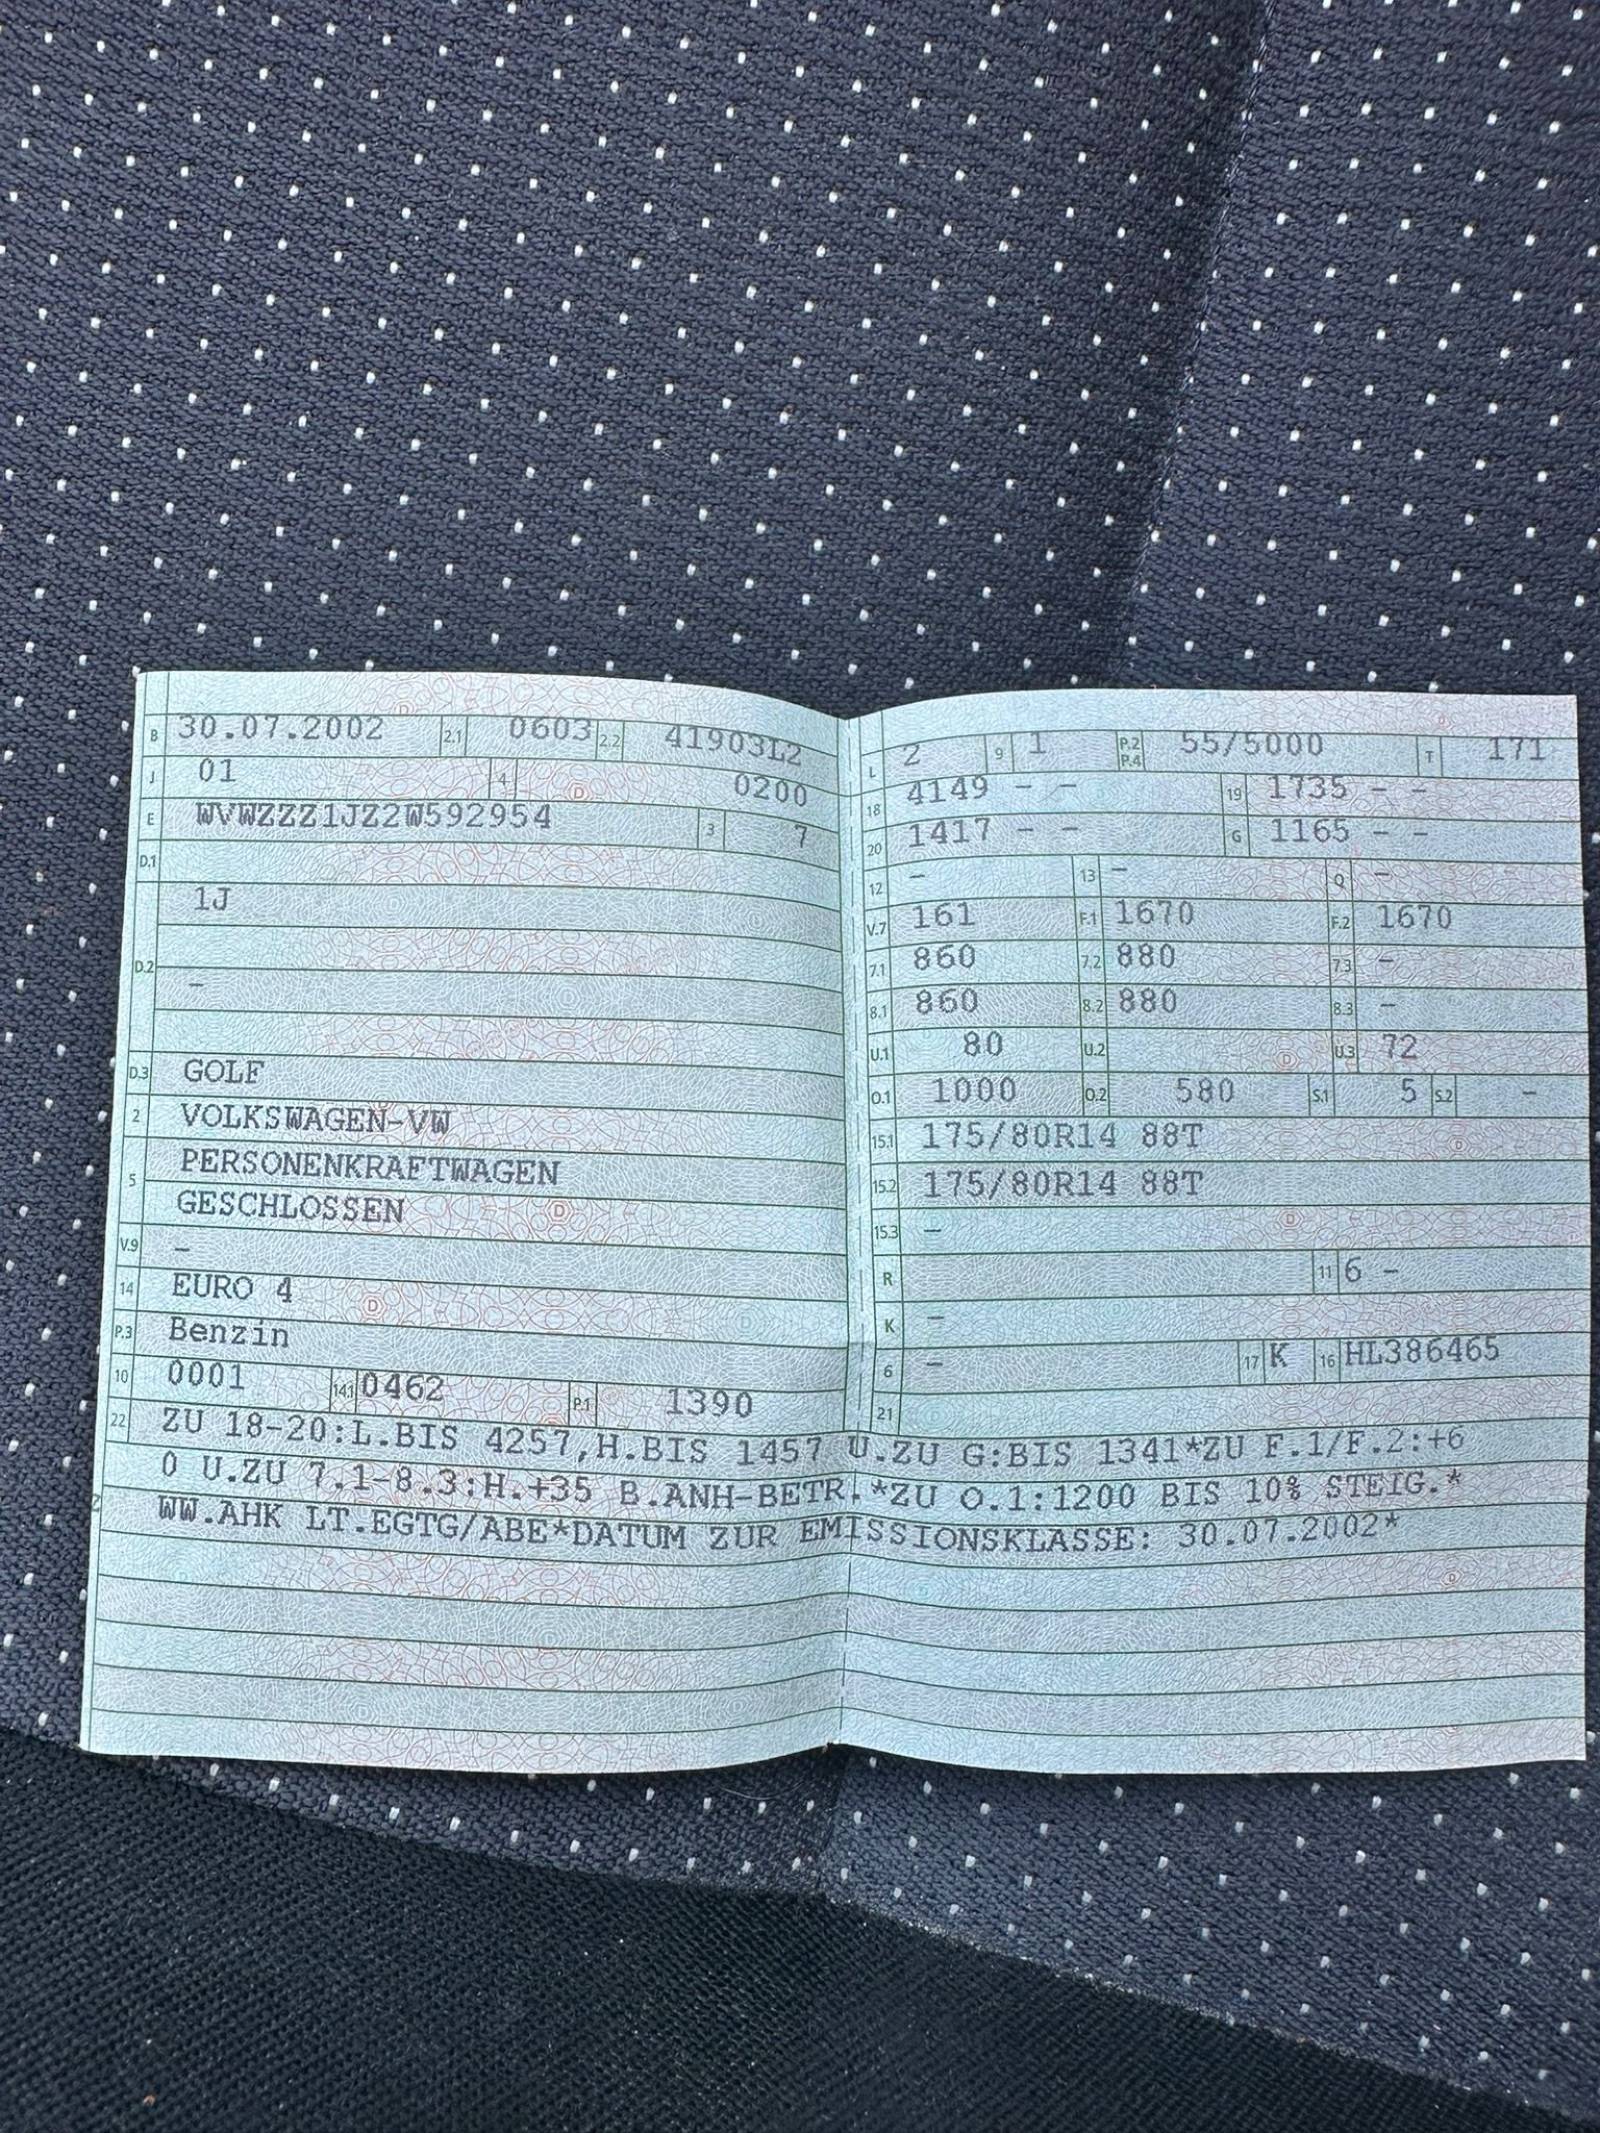 B 30.07.2002 2.1 0603 2.2 41903L2
J 01 4 0200
E WVWZZZ1JZ2W592954 3 7
D.1
1J
D.2
-
D.3 GOLF
2 VOLKSWAGEN-VW
5 PERSONENKRAFTWAGEN
GESCHLOSSEN
V.9 -
14 EURO 4
P.3 Benzin
10 0001 14.1 0462 P.1 1390
L 2 9 1 P.2 P.4 55/5000 T 171
18 4149 - - 19 1735 - -
20 1417 - - G 1165 - -
12 - 13 - Q -
V.7 161 F.1 1670 F.2 1670
7.1 860 7.2 880 7.3 -
8.1 860 8.2 880 8.3 -
U.1 80 U.2 U.3 72
O.1 1000 O.2 580 S.1 5 S.2 -
15.1 175/80R14 88T
15.2 175/80R14 88T
15.3 -
R 11 6 -
K -
6 - 17 K 16 HL386465
21
22 ZU 18-20:L.BIS 4257,H.BIS 1457 U.ZU G:BIS 1341*ZU F.1/F.2:+6
0 U.ZU 7.1-8.3:H.+35 B.ANH-BETR.*ZU O.1:1200 BIS 10% STEIG.*
WW.AHK LT.EGTG/ABE*DATUM ZUR EMISSIONSKLASSE: 30.07.2002*